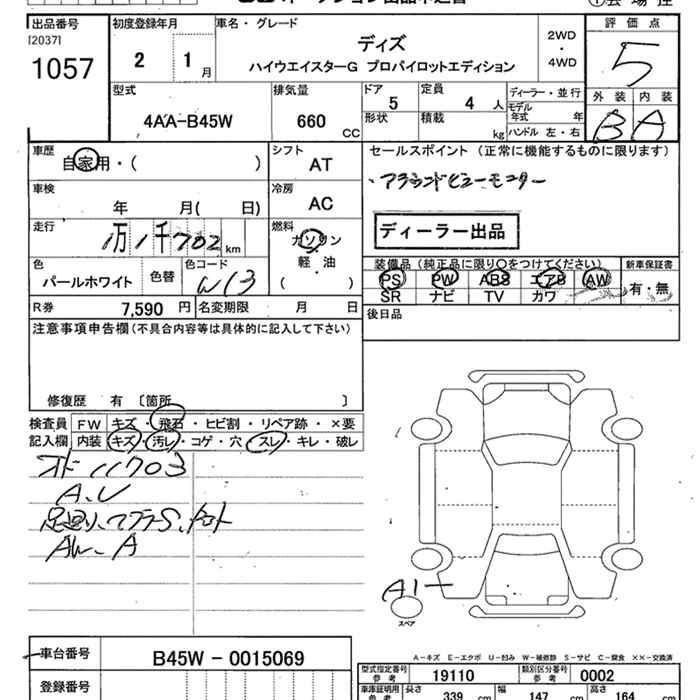 出品番号
[2037]
1057
初度登録年月
2 1月
車名・グレード
デイズ
ハイウエイスターG プロパイロットエディション
2WD
・
4WD
評価点
5
型式
4AA-B45W
排気量
660 CC
ドア 5
定員 4 人
形状
積載 kg
ディーラー・並行
モデル年式 年
ハンドル 左・右
外装 内装
B A
車歴
自家用・( )
シフト
AT
車検
年 月( 日)
冷房
AC
走行
1万1千702km
燃料
ガソリン
軽・油
( )
色
パールホワイト
色替
色コード
W13
R券 7,590 円
名変期限 月 日
セールスポイント(正常に機能するものに限ります)
・アラウンドビューモニター
ディーラー出品
装備品(純正品に限り○をつけてください)
PS PW ABS エアB AW
SR ナビ TV カワ
新車保証書
有・無
後日品
注意事項申告欄(不具合内容等は具体的に記入して下さい)
修復歴 有 〔箇所 〕
検査員
記入欄
FW キズ・飛石・ヒビ割・リペア跡・×要
内装 キズ・汚レ・コゲ・穴・スレ・キレ・破レ
オド11703
A.U
足廻り、マフラーS、ナット
AW-A
A1
スペア
車台番号
B45W-0015069
登録番号
A-キズ E-エクボ U-凹み W-補修跡 S-サビ C-腐食 ××-交換済
型式指定番号
参考
19110
類別区分番号
参考
0002
車庫証明用
参考
長さ 339 cm
幅 147 cm
高さ 164 cm